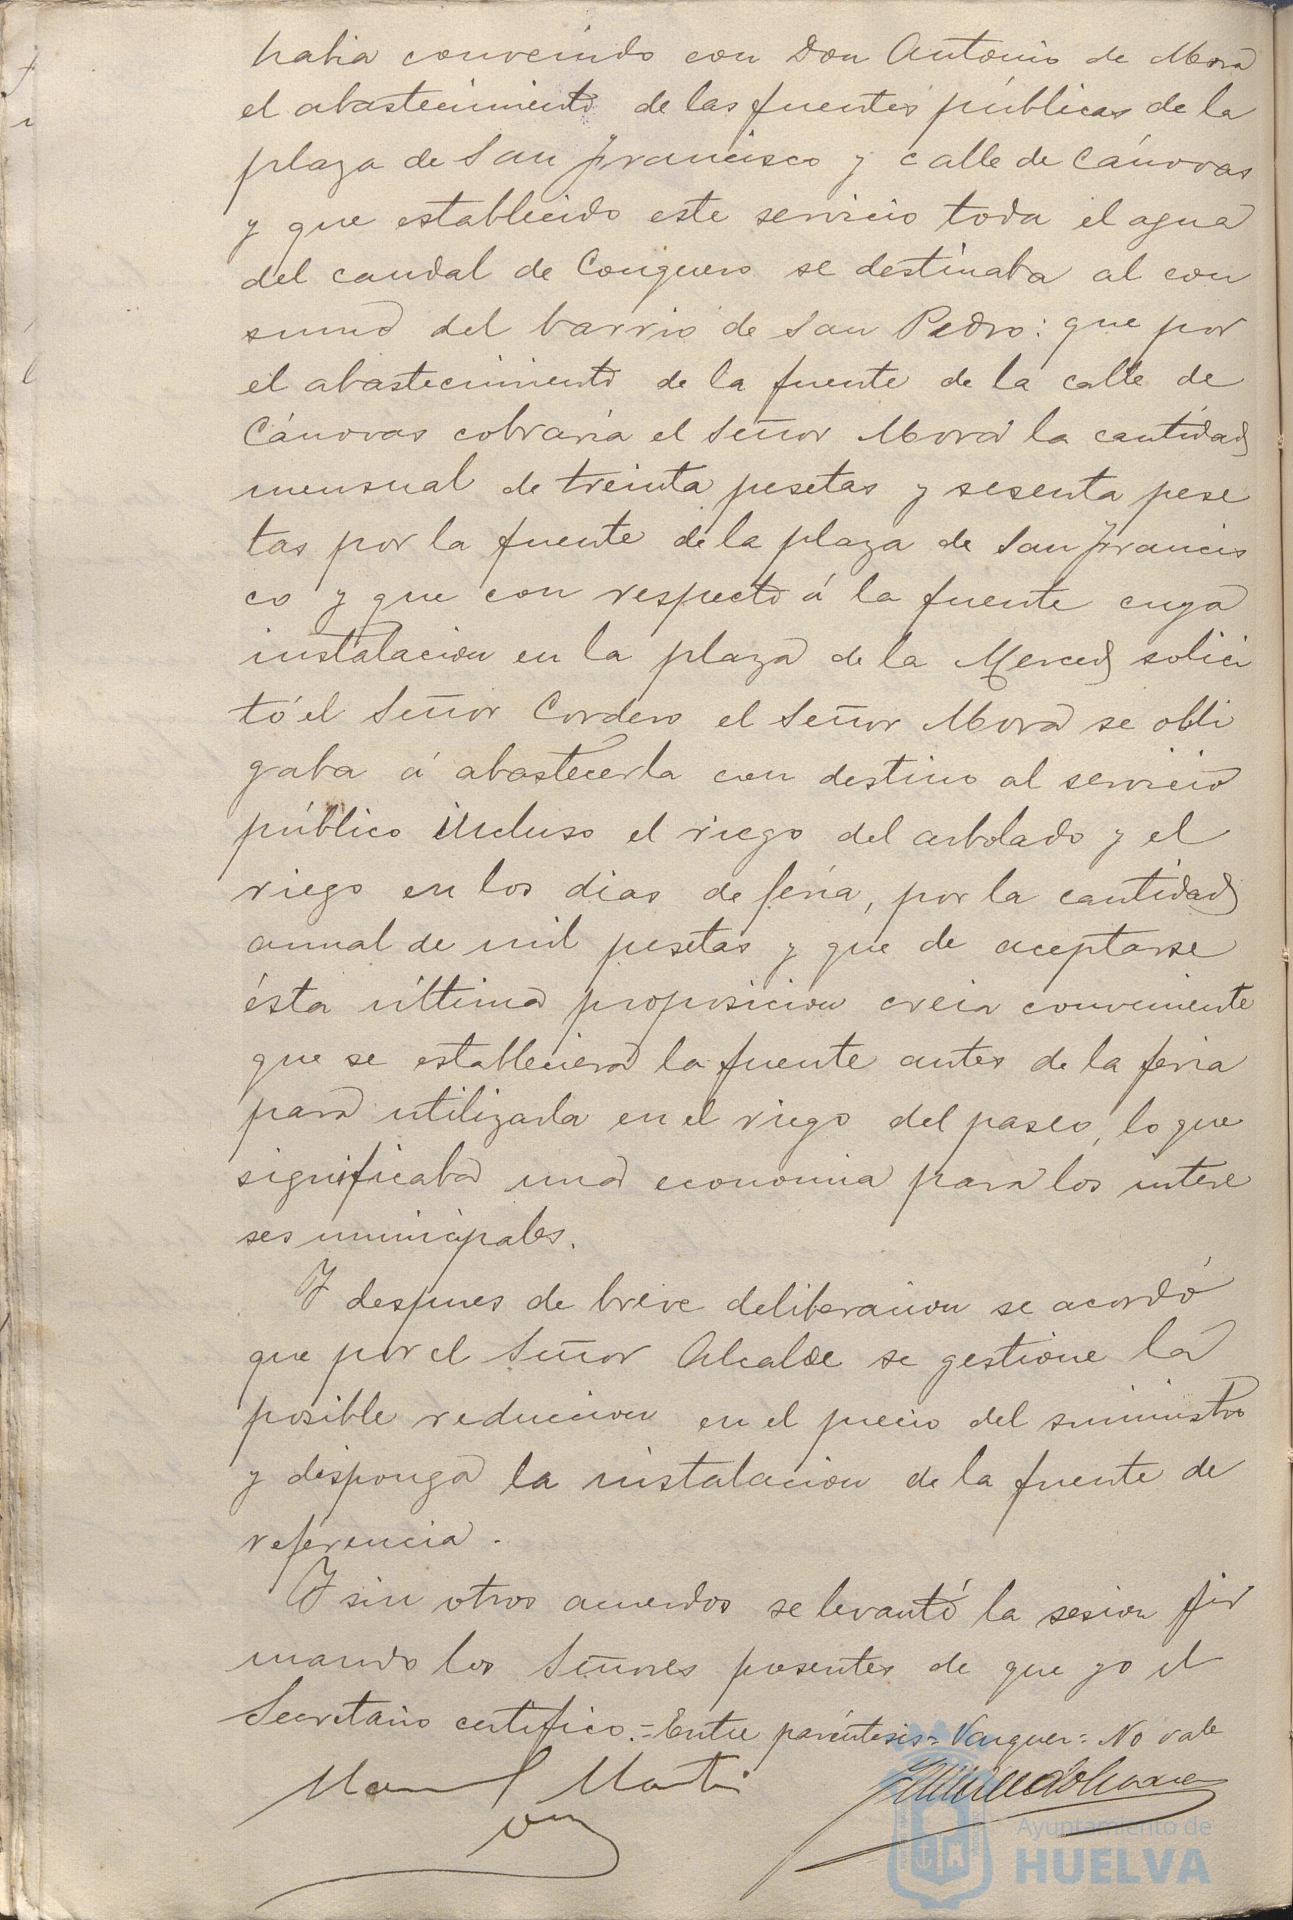 habia convenido con Don Antonio de Mora
el abastecimiento de las fuentes públicas de la
plaza de San Francisco y calle de Cánovas
y que establecido este servicio toda el agua
del caudal de Conquero se destinaba al con
sumo del barrio de San Pedro: que por
el abastecimiento de la fuente de la calle de
Cánovas cobraria el Señor Mora la cantidad
mensual de treinta pesetas y sesenta pese
tas por la fuente de la plaza de San Francis
co y que con respecto á la fuente cuya
instalacion en la plaza de la Merced solici
tó el Señor Cordero el Señor Mora se obli
gaba á abastecerla con destino al servicio
público incluso el riego del arbolado y el
riego en los dias de feria, por la cantidad
anual de mil pesetas y que de aceptarse
ésta última proposicion creia conveniente
que se estableciera la fuente antes de la feria
para utilizarla en el riego del paseo, lo que
significaba una economia para los intere
ses municipales.
Y despues de breve deliberacion se acordó
que por el Señor Alcalde se gestione la
posible reduccion en el precio del suministro
y disponga la instalacion de la fuente de
referencia.
Y sin otros acuerdos se levantó la sesion fir
mando los Señores presentes de que yo el
Secretario certifico.=Entre paréntesis= =No vale
Manuel Martin
Ayuntamiento de
HUELVA